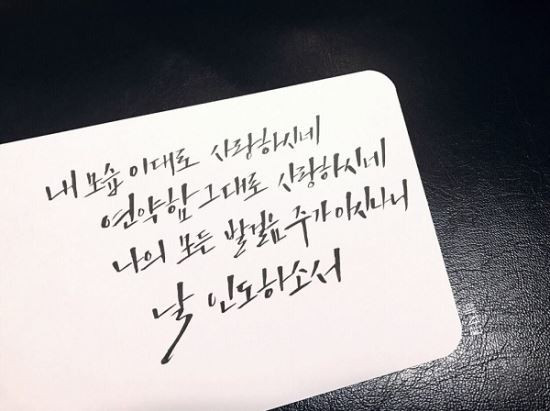 내 모습 이대로 사랑하시네
연약함 그대로 사랑하시네
나의 모든 발걸음 주가 아시나니
날 인도하소서